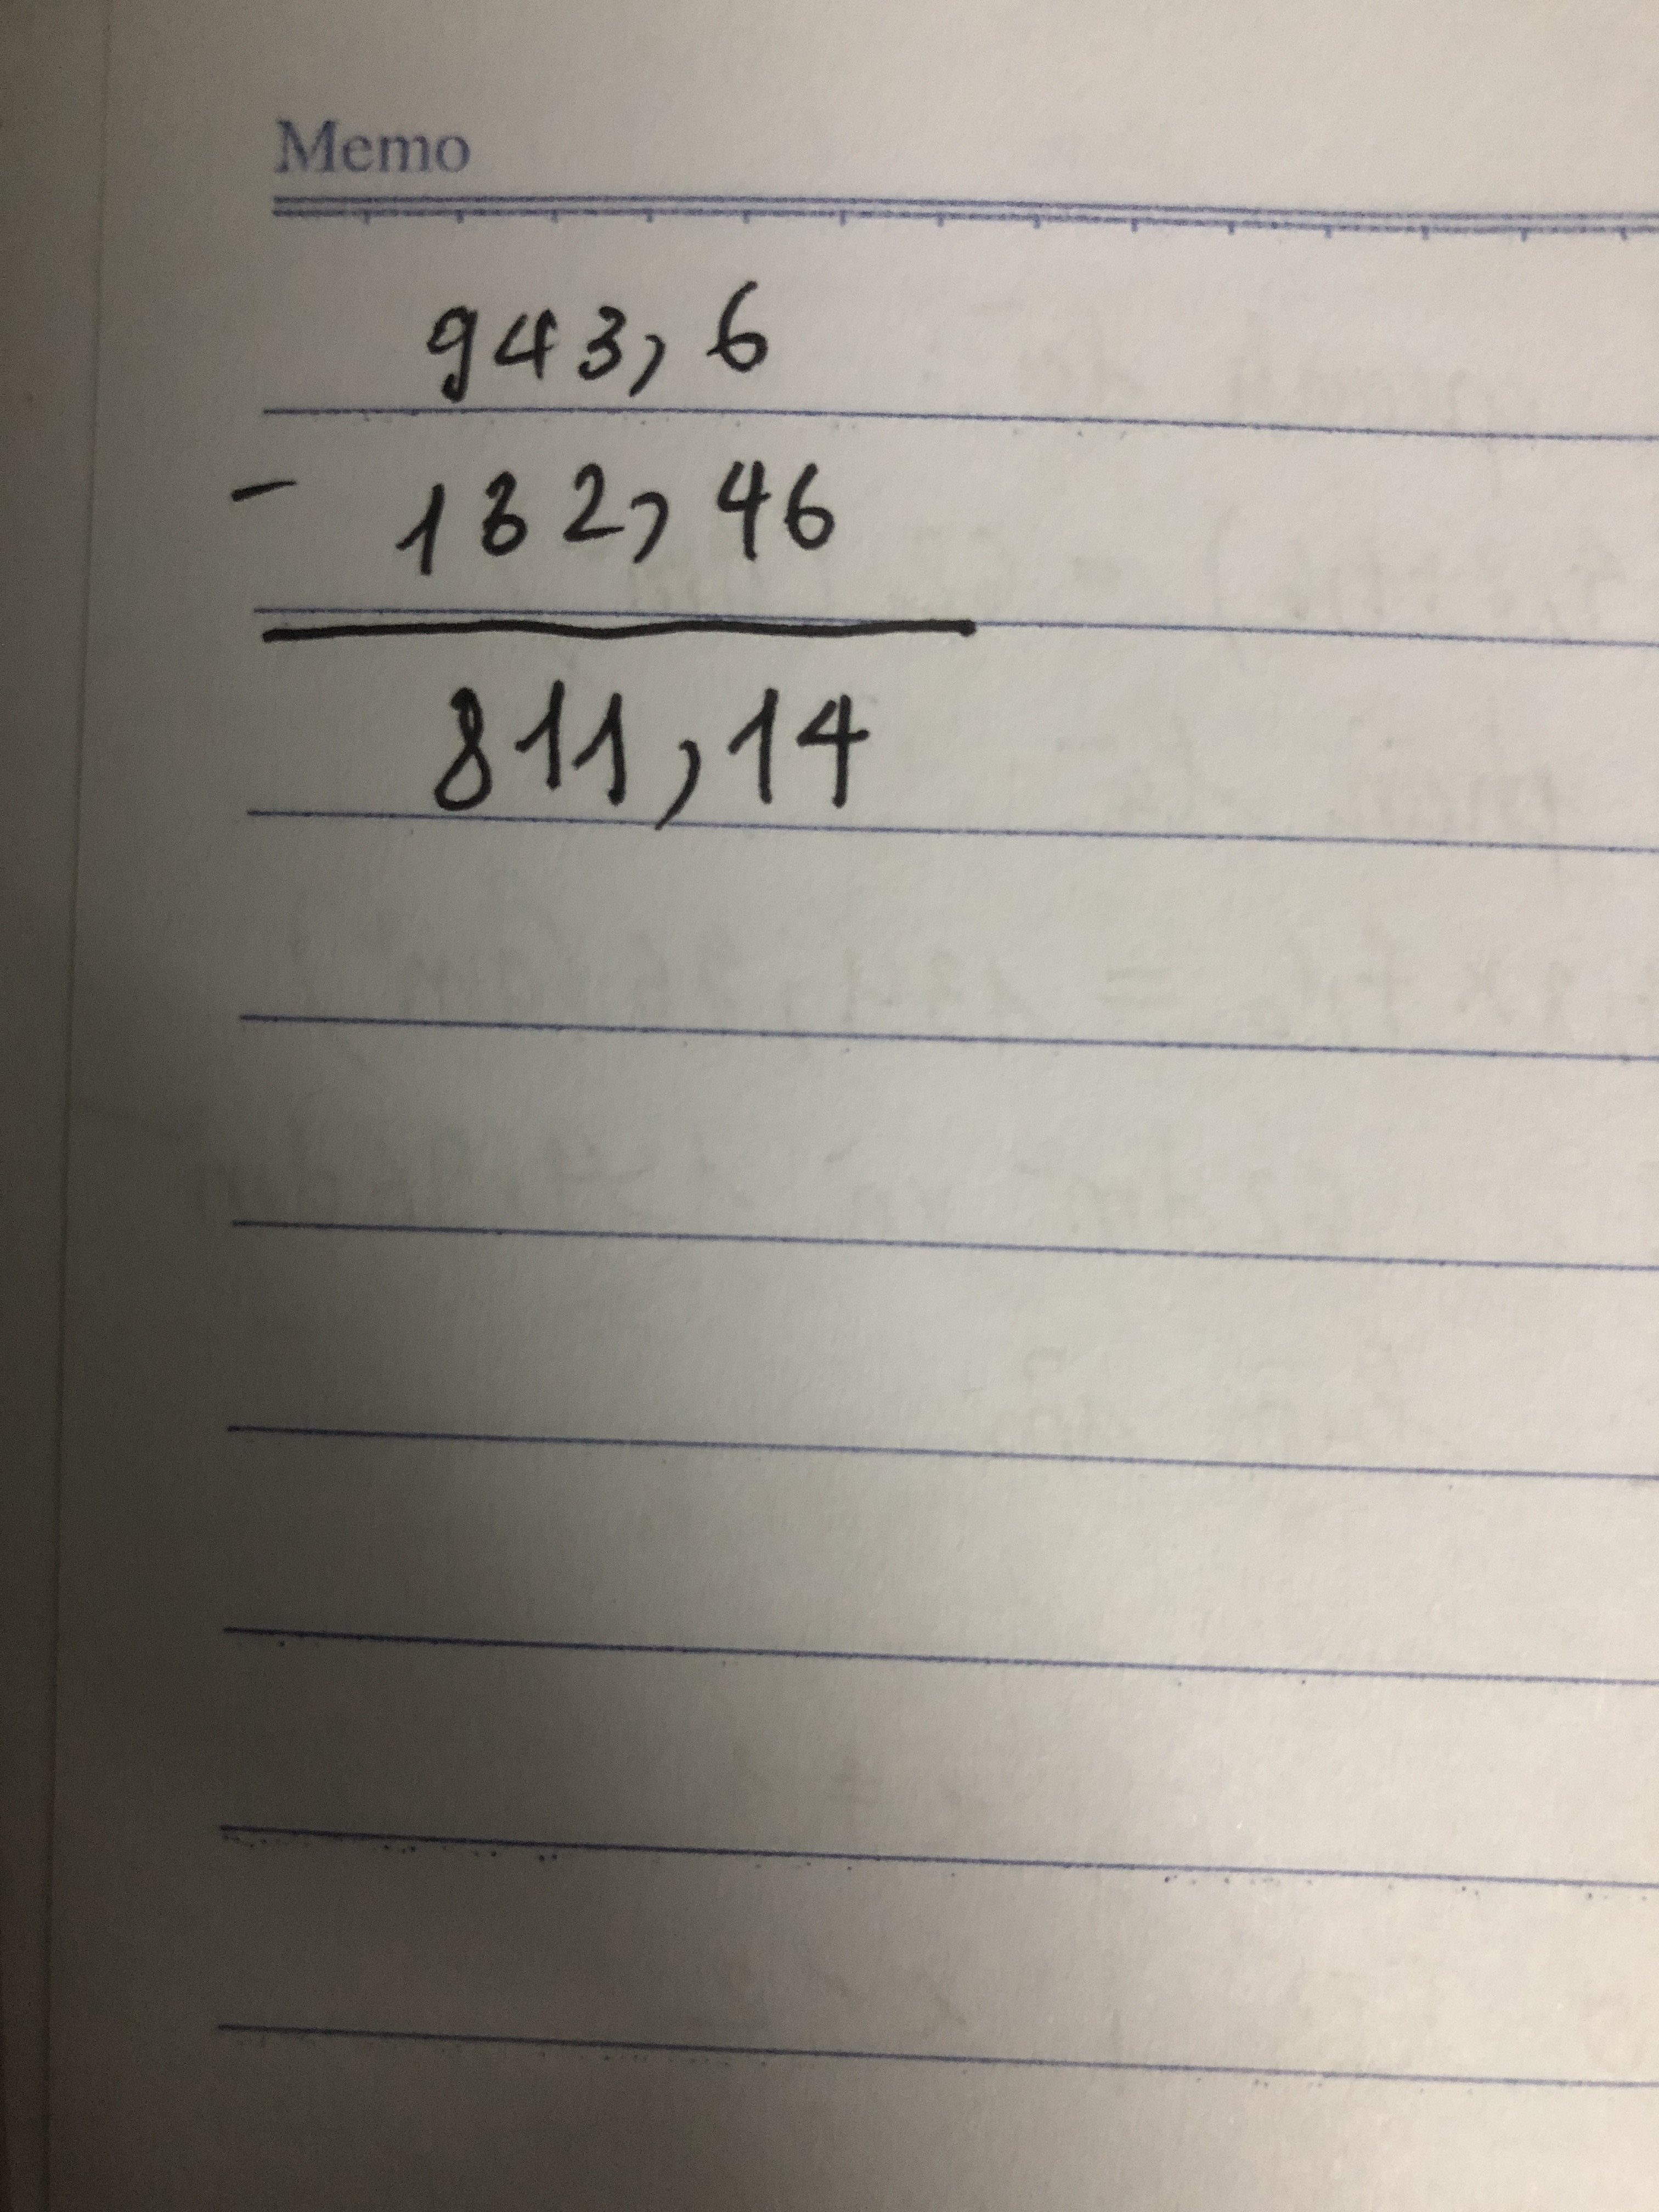 Memo
943,6
- 132,46
811,14